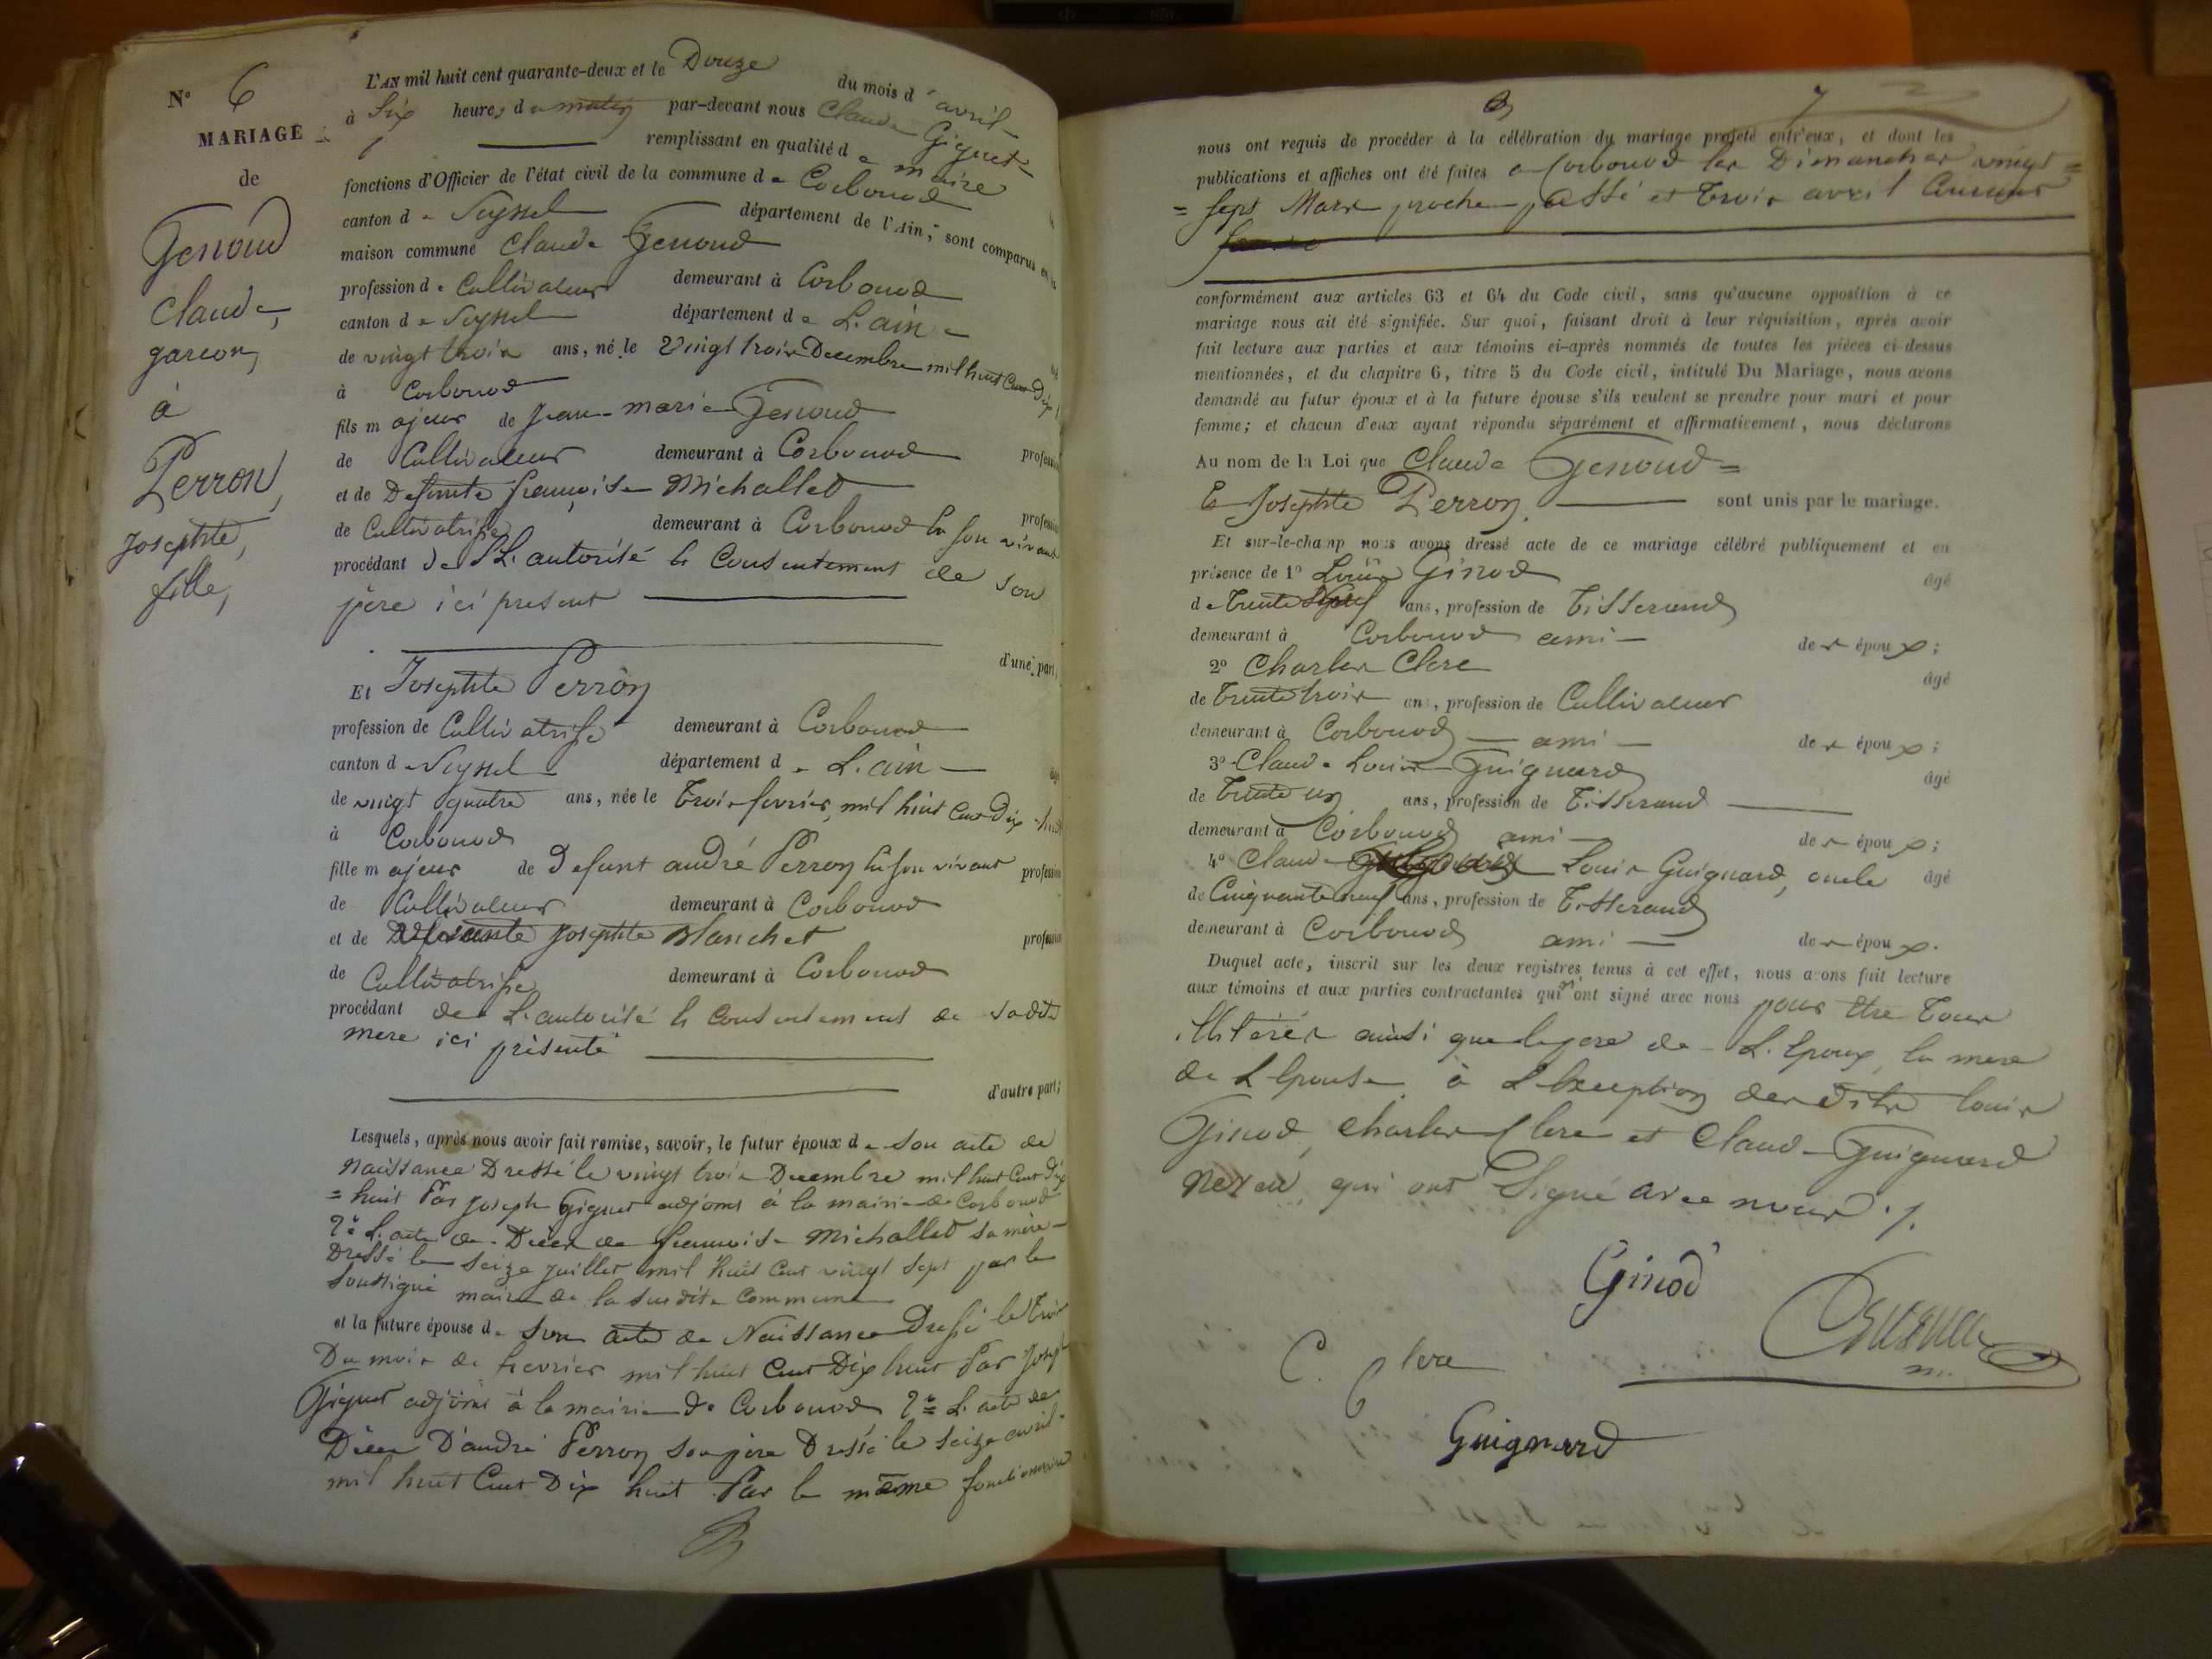 N° 6
MARIAGE
de
Genoud
Claude,
garcon,
à
Perron,
Josephte,
fille,
L'AN mil huit cent quarante-deux et le Douze du mois d'avril
à Six heures du matin par-devant nous Claude Giguet
maire remplissant en qualité de
fonctions d'Officier de l'état civil de la commune de Corbonod
canton de Seyssel département de l'Ain, sont comparus en la
maison commune Claude Genoud
profession de Cultivateur demeurant à Corbonod
canton de Seyssel département de L'ain
de vingt trois ans, né le Vingt trois Decembre mil huit Cent Dix
à Corbonod
fils majeur de Jean-marie Genoud
de Cultivateur demeurant à Corbonod profession
et de Defunte françoise Michallet
de Cultivatrisse demeurant à Corbonod En son vivant profession
procédant de L'autorité et Consentement de son
père ici présent
d'une part;
Et Josephte Perron
profession de Cultivatrisse demeurant à Corbonod
canton de Seyssel département de L'ain
de vingt quatre ans, née le Trois fevrier mil huit Cent Dix huit
à Corbonod
fille majeur de Defunt andré Perron En son vivant profession
de Cultivateur demeurant à Corbonod
et de Josephte Blanchet profession
de Cultivatrisse demeurant à Corbonod
procédant de L'autorité et Consentement de sadite
mere ici présente
d'autre part;
Lesquels, après nous avoir fait remise, savoir, le futur époux de son acte de
Naissance Dressé le vingt trois Decembre mil huit Cent Dix
= huit Par Joseph Giguet adjoint à la mairie de Corbonod
2° L'acte de Décès de françoise Michallet sa mère
Dressé le seize juillet mil huit Cent vingt sept par le
soussigné maire de la susdite Commune
et la future épouse de son acte de Naissance Dressé le Trois
Du mois de fevrier mil huit Cent Dix huit Par Joseph
Giguet adjoint à la mairie de Corbonod 2° L'acte de
Décès D'andré Perron son père Dressé le seize avril
mil huit Cent Dix huit Par le même fonctionnaire
7
nous ont requis de procéder à la célébration du mariage projeté entr'eux, et dont les
publications et affiches ont été faites a Corbonod les Dimanches vingt =
= sept Mars proche passé et Trois avril Courant
conformément aux articles 63 et 64 du Code civil, sans qu'aucune opposition à ce
mariage nous ait été signifiée. Sur quoi, faisant droit à leur réquisition, après avoir
fait lecture aux parties et aux témoins ci-après nommés de toutes les pièces ci-dessus
mentionnées, et du chapitre 6, titre 5 du Code civil, intitulé Du Mariage, nous avons
demandé au futur époux et à la future épouse s'ils veulent se prendre pour mari et pour
femme; et chacun d'eux ayant répondu séparément et affirmativement, nous déclarons
Au nom de la Loi que Claude Genoud =
Et Josephte Perron sont unis par le mariage.
Et sur-le-champ nous avons dressé acte de ce mariage célébré publiquement et en
présence de 1° Louis Ginod âgé
de Trente ans, profession de Tisserand
demeurant à Corbonod ami des époux;
2° Charles Clerc âgé
de Trente trois ans, profession de Cultivateur
demeurant à Corbonod ami des époux;
3° Claude Louis Guignard âgé
de Trente un ans, profession de Tisserand
demeurant à Corbonod ami des époux;
4° Claude Louis Guignard, oncle âgé
de Cinquante neuf ans, profession de Tisserand
demeurant à Corbonod ami des époux.
Duquel acte, inscrit sur les deux registres tenus à cet effet, nous avons fait lecture
aux témoins et aux parties contractantes qui n'ont signé avec nous pour être Tous
illitérés ainsi que le pere de L'Epoux, la mere
de L'Epouse à L'Exception des dits Louis
Ginod, Charles Clerc et Claude Guignard
neveu qui ont Signé avec nous ./.
Ginod
C. Clerc
Guignard